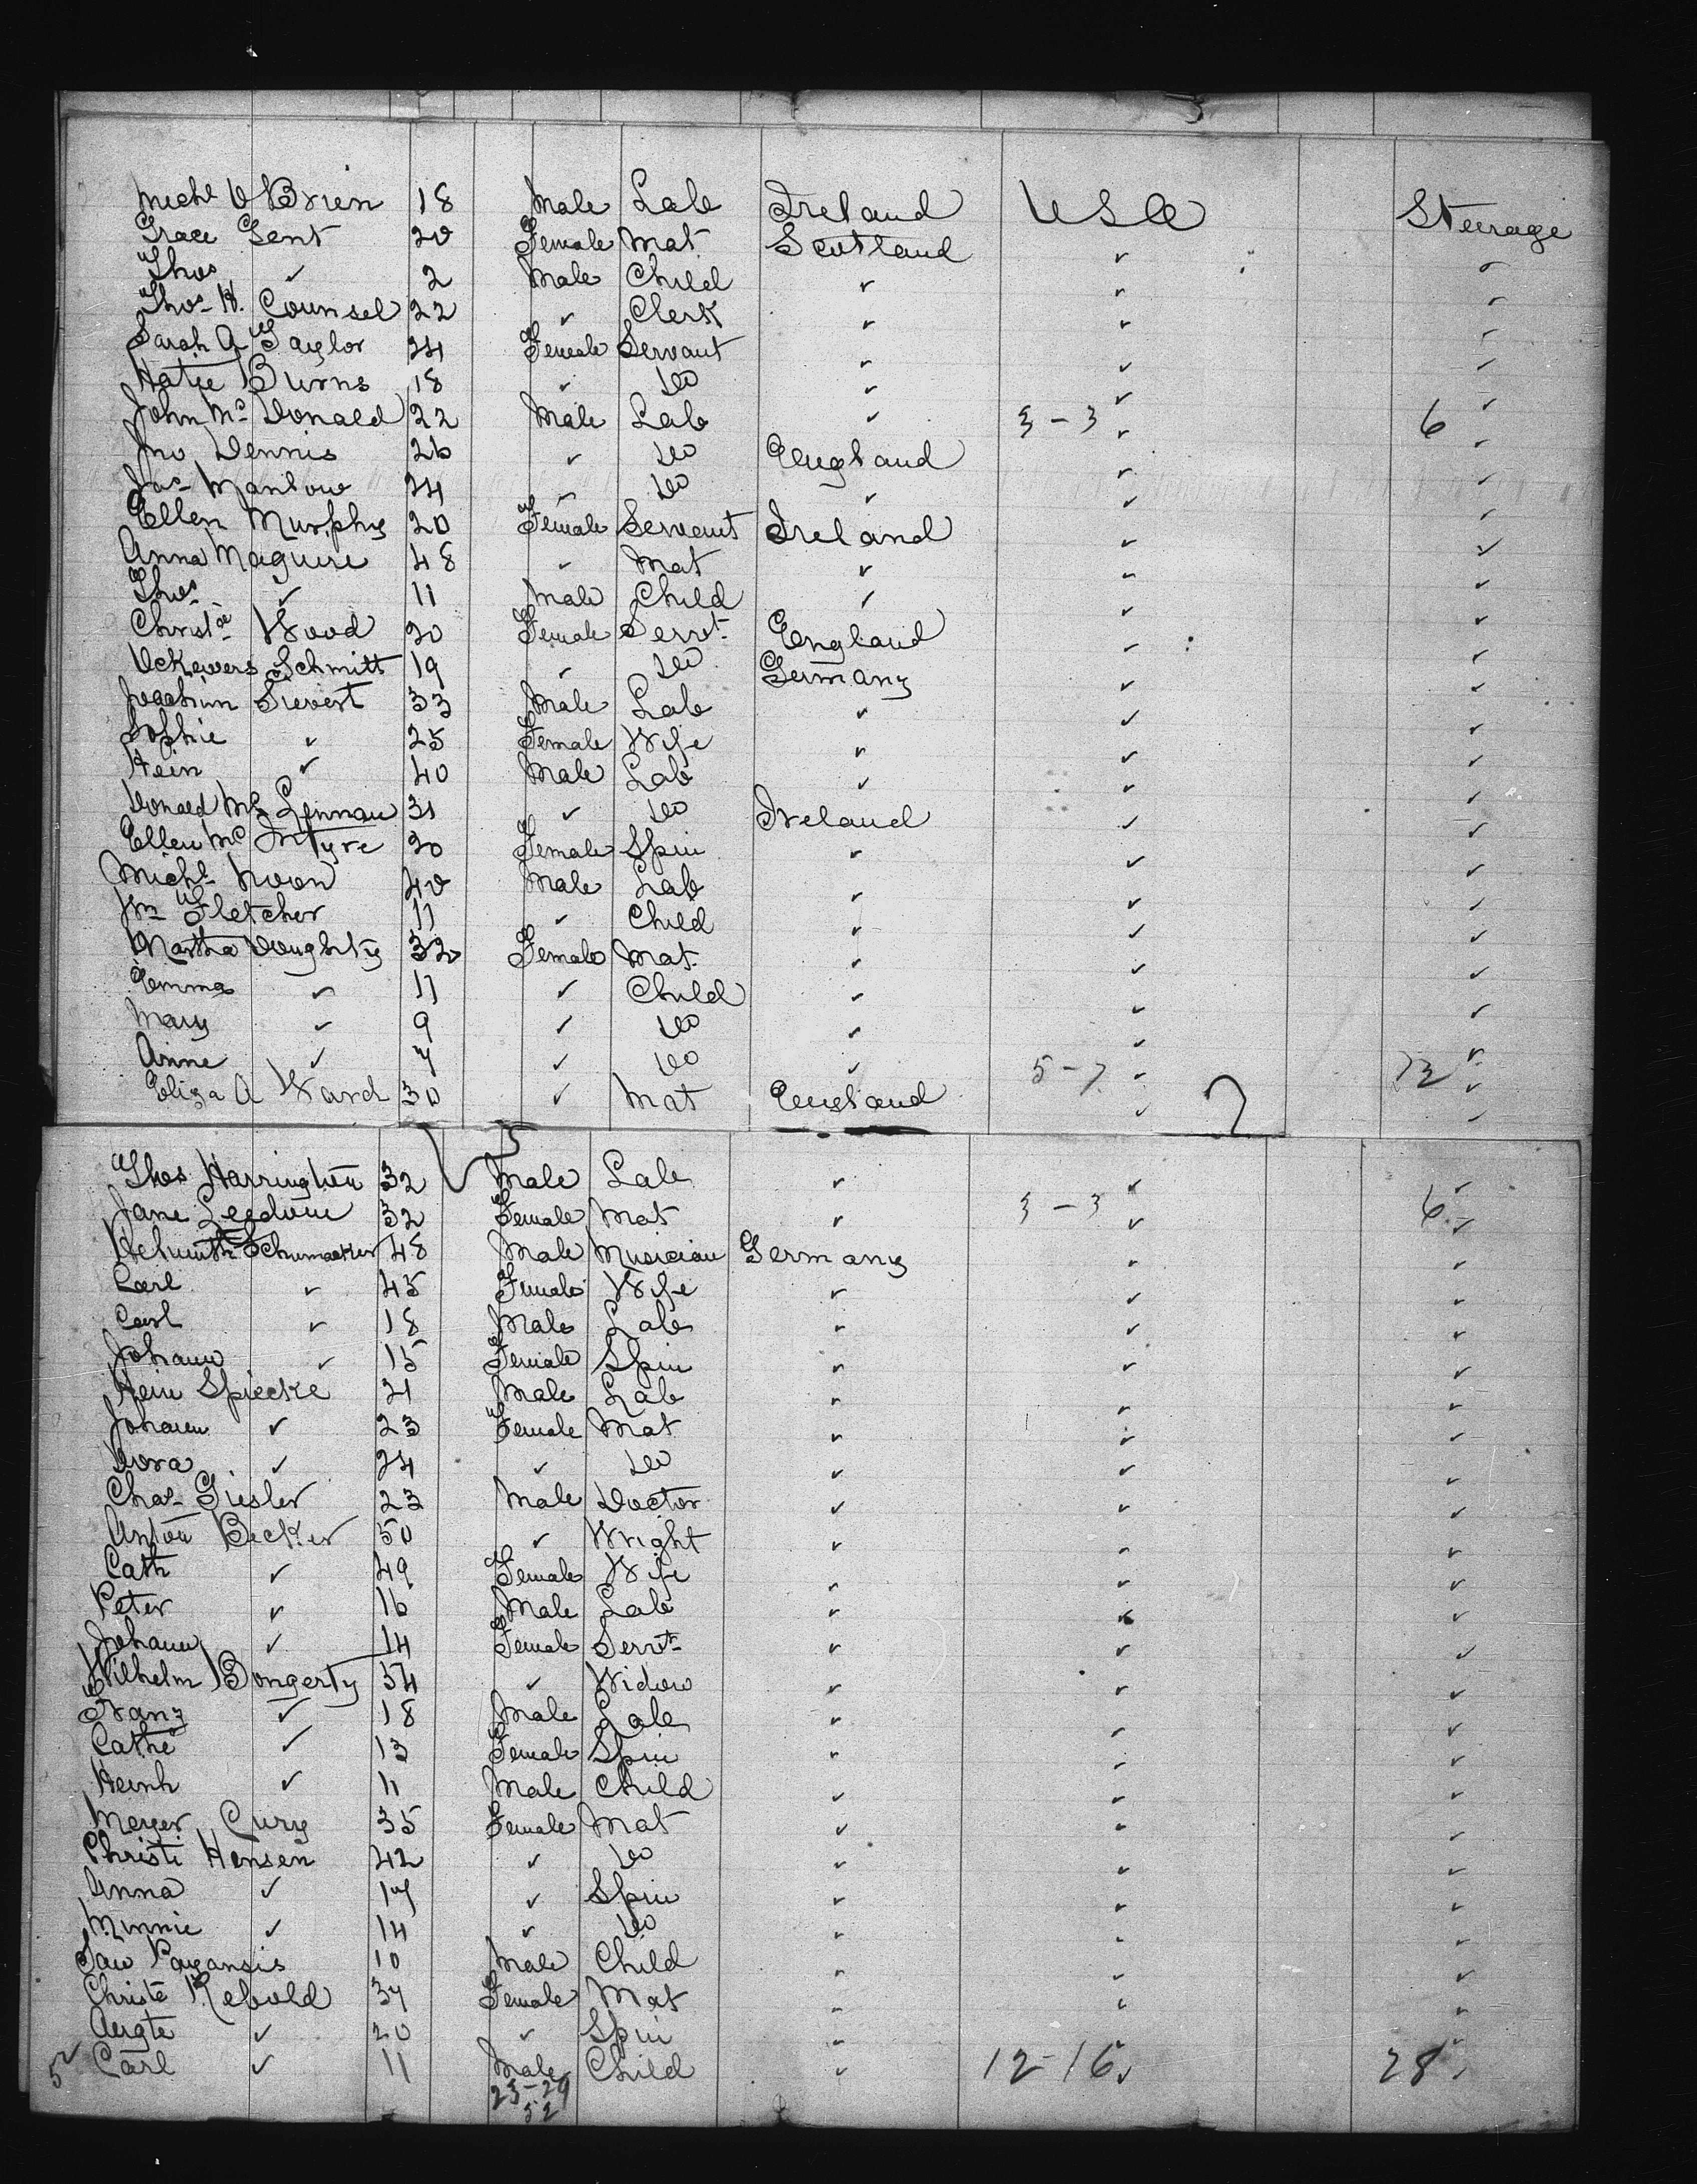 Michl O Brien 18 Male Lab Ireland USA Steerage
Grace Gent 20 Female Mat Scotland ✓ ✓
Thos ✓ 2 Male Child ✓ ✓ ✓
Thos H. Counsel 22 ✓ Clerk ✓ ✓ ✓
Sarah A Taylor 24 Female Servant ✓ ✓ ✓
Hatie Burns 18 ✓ Do ✓ ✓ ✓
John Mc Donald 22 Male Lab ✓ 3-3 ✓ 6 ✓
Jno Dennis 26 ✓ Do England ✓ ✓
Jas Manlow 24 ✓ Do ✓ ✓ ✓
Ellen Murphy 20 Female Servant Ireland ✓ ✓
Anna Maguire 48 ✓ Mat ✓ ✓ ✓
Thos ✓ 11 Male Child ✓ ✓ ✓
Christ Wood 20 Female Servt England ✓ ✓
Schmitt 19 ✓ Do Germany ✓ ✓
Joachim Sievert 33 Male Lab ✓ ✓ ✓
Sophie ✓ 25 Female Wife ✓ ✓ ✓
Hein ✓ 40 Male Lab ✓ ✓ ✓
Donald Mc Lennan 31 ✓ Do Ireland ✓ ✓
Ellen Mc Intyre 20 Female Spin ✓ ✓ ✓
Michl Noon 40 Male Lab ✓ ✓ ✓
Wm Fletcher 11 ✓ Child ✓ ✓ ✓
Martha Doughty 32 Female Mat ✓ ✓ ✓
Emma ✓ 11 ✓ Child ✓ ✓ ✓
Mary ✓ 9 ✓ Do ✓ ✓ ✓
Anne ✓ 7 ✓ Do ✓ 5-7 ✓ 12 ✓
Eliza A Ward 30 ✓ Mat England ✓ ✓
Thos Harrington 32 Male Lab ✓ ✓ ✓
Jane Leedom 32 Female Mat ✓ 3-3 ✓ 6 ✓
Schumacker 48 Male Musician Germany ✓ ✓
Carl ✓ 45 Female Wife ✓ ✓ ✓
Carl ✓ 18 Male Lab ✓ ✓ ✓
Johann ✓ 15 Female Spin ✓ ✓ ✓
Hein Spiecke 21 Male Lab ✓ ✓ ✓
Johann ✓ 23 Female Mat ✓ ✓ ✓
Dora ✓ 24 ✓ Do ✓ ✓ ✓
Chas Giesler 23 Male Doctor ✓ ✓ ✓
Anton Becker 50 ✓ Wright ✓ ✓ ✓
Cath ✓ 49 Female Wife ✓ ✓ ✓
Peter ✓ 16 Male Lab ✓ ✓ ✓
Johann ✓ 14 Female Servt ✓ ✓ ✓
Wilhelm Bongerty 54 ✓ Widow ✓ ✓ ✓
Franz ✓ 18 Male Lab ✓ ✓ ✓
Cathe ✓ 13 Female Spin ✓ ✓ ✓
Heinh ✓ 11 Male Child ✓ ✓ ✓
Meyer Cury 35 Female Mat ✓ ✓ ✓
Christi Hensen 42 ✓ Do ✓ ✓ ✓
Anna ✓ 17 ✓ Spin ✓ ✓ ✓
Minnie ✓ 14 ✓ Do ✓ ✓ ✓
10 Male Child ✓ ✓ ✓
Christe Rebold 37 Female Mat ✓ ✓ ✓
Aergte ✓ 20 ✓ Spin ✓ ✓
Carl ✓ 11 Male Child ✓ 12-16 ✓ 28 ✓
23-29
52